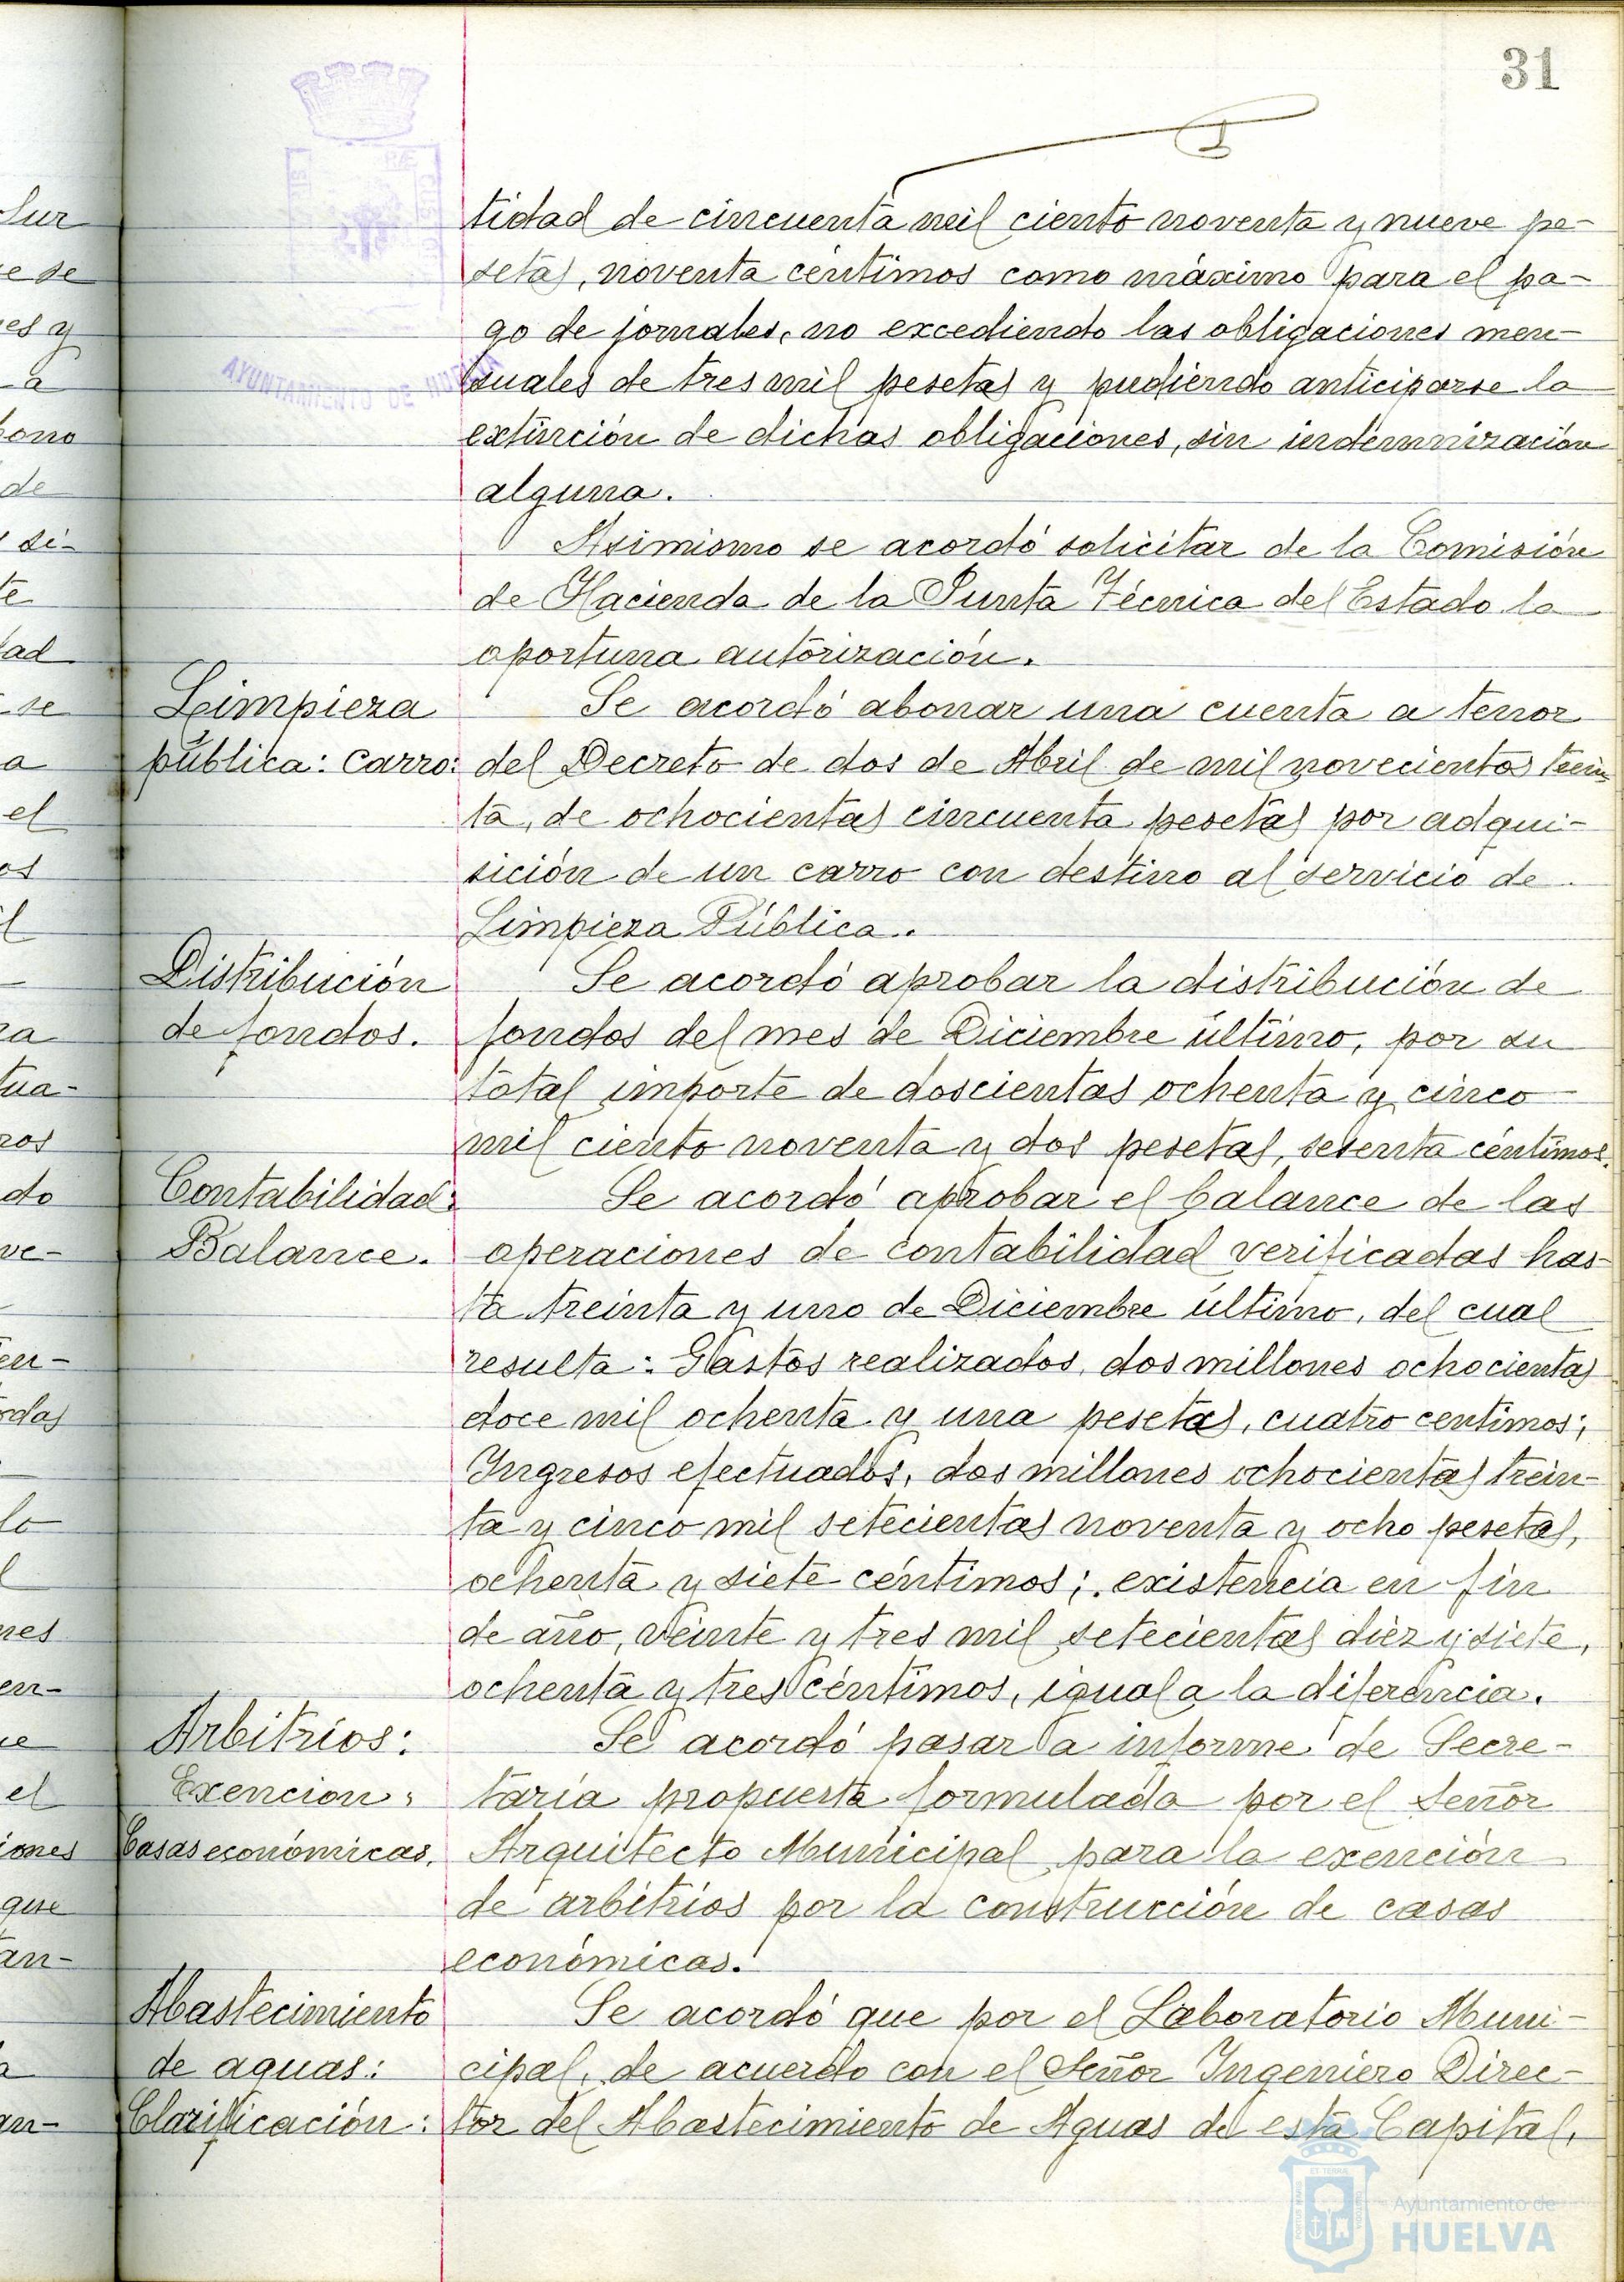 31
tidad de cincuenta mil ciento noventa y nueve pe-
setas, noventa céntimos como máximo para el pa-
go de jornales, no excediendo las obligaciones men-
suales de tres mil pesetas y pudiendo anticiparse la
extinción de dichas obligaciones, sin indemnización
alguna.
Asimismo se acordó solicitar de la Comisión
de Hacienda de la Junta Técnica del Estado la
oportuna autorización.
Limpieza
pública: carro:
Se acordó abonar una cuenta a tenor
del Decreto de dos de Abril de mil novecientos trein
ta, de ochocientas cincuenta pesetas por adqui-
sición de un carro con destino al servicio de
Limpieza Pública.
Distribución
de fondos.
Se acordó aprobar la distribución de
fondos del mes de Diciembre último, por su
total importe de doscientas ochenta y cinco
mil ciento noventa y dos pesetas, sesenta céntimos.
Contabilidad:
Balance.
Se acordó aprobar el balance de las
operaciones de contabilidad verificadas has-
ta treinta y uno de Diciembre último, del cual
resulta: Gastos realizados, dos millones ochocientas
doce mil ochenta y una pesetas, cuatro centimos;
Ingresos efectuados, dos millones ochocientas trein-
ta y cinco mil setecientas noventa y ocho pesetas,
ochenta y siete céntimos; existencia en fin
de año, veinte y tres mil setecientas diez y siete,
ochenta y tres céntimos, igual a la diferencia.
Arbitrios:
Exencion,
Casas económicas.
Se acordó pasar a informe de Secre-
taría propuesta formulada por el Señor
Arquitecto Municipal para la exención
de arbitrios por la construcción de casas
económicas.
Abastecimiento
de aguas:
Clarificación:
Se acordó que por el Laboratorio Muni-
cipal, de acuerdo con el Señor Ingeniero Direc-
tor del Abastecimiento de Aguas de esta Capital,
AYUNTAMIENTO DE HUELVA
Ayuntamiento de
HUELVA